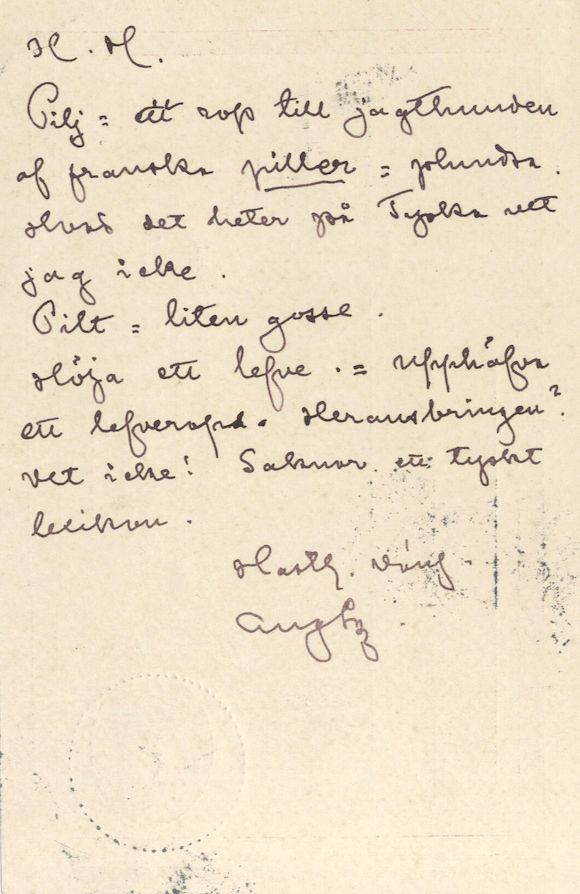 H. H.
Pilj = ett rop till jagthunden
af franska piller = plundra.
Hvad det heter på Tyska vet
jag icke.
Pilt = liten gosse.
Höja ett lefve. = Upphäfva
ett lefverop. Herausbringen?
Vet icke! Saknar ett tyskt
lexikon.
Hastigt. Vänl.